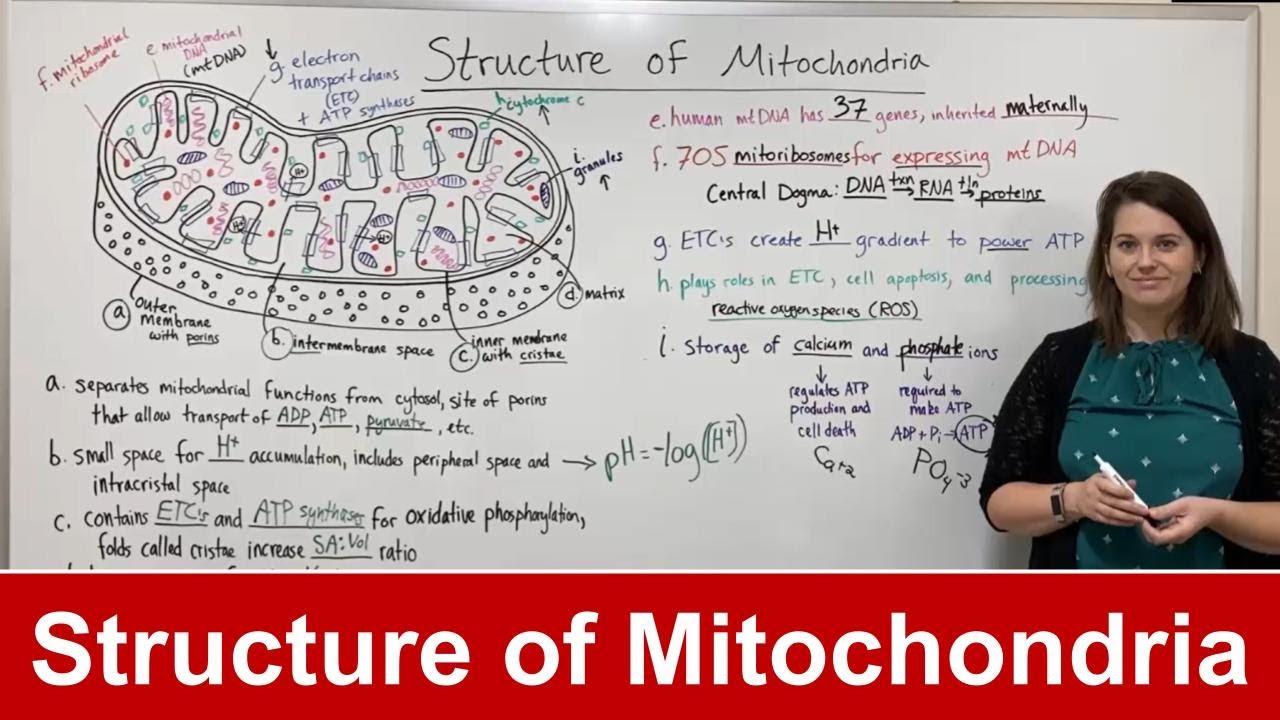 Structure of Mitochondria
f. mitochondrial
ribosome
e. mitochondrial
DNA
(mtDNA)
↓
g. electron
transport chains
(ETC)
+ ATP synthases
h. cytochrome c
↑
i.
granules
↑
H+
H+
H+
a
outer
membrane
with porins
b. intermembrane space
inner membrane
c. with cristae
d. matrix
a. separates mitochondrial functions from cytosol, site of porins
that allow transport of ADP, ATP, pyruvate, etc.
b. small space for H+ accumulation, includes peripheral space and → pH=-log([H+])
intracristal space
c. contains ETC's and ATP synthases for oxidative phosphorylation,
folds called cristae increase SA:Vol ratio
e. human mtDNA has 37 genes, inherited maternally
f. 70S mitoribosomes for expressing mtDNA
Central Dogma: DNA txn→ RNA tln→ proteins
g. ETC's create H+ gradient to power ATP
h. plays roles in ETC, cell apoptosis, and processing
reactive oxygen species (ROS)
i. storage of calcium and phosphate ions
↓ ↓
regulates ATP
production and
cell death
Ca+2
required to
make ATP
ADP + Pi → ATP
PO4-3
Structure of Mitochondria